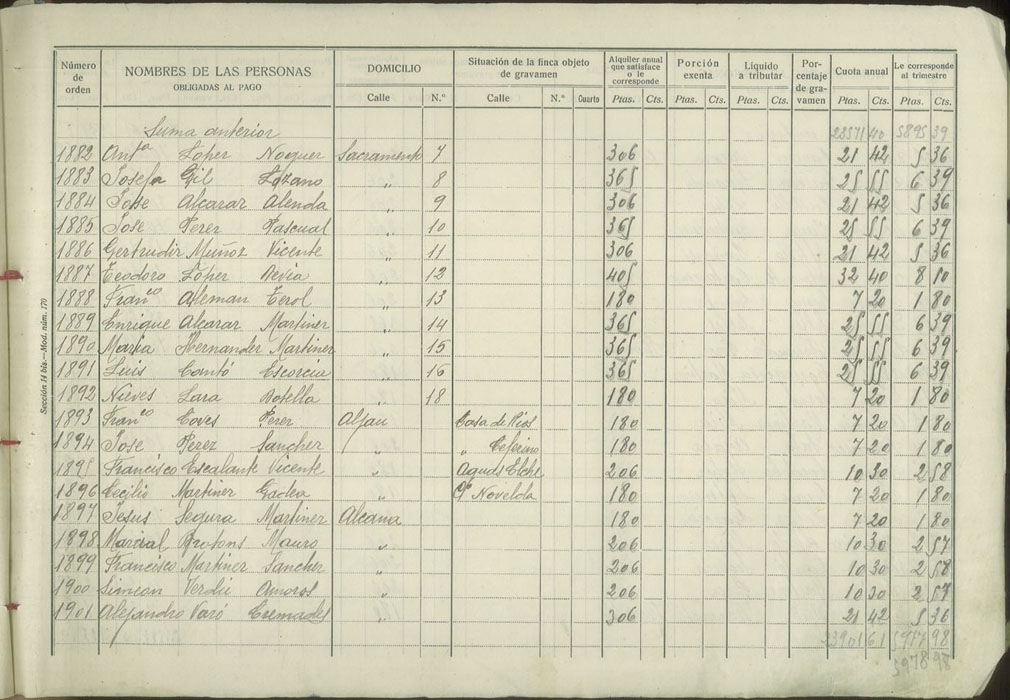 Número de orden | NOMBRES DE LAS PERSONAS OBLIGADAS AL PAGO | DOMICILIO | Situación de la finca objeto de gravamen | Alquiler anual que satisface o le corresponde | Porción exenta | Líquido a tributar | Por-centaje de gra-vamen | Cuota anual | Le corresponde al trimestre
Calle | N.º | Calle | N.º | Cuarto | Ptas. | Cts. | Ptas. | Cts. | Ptas. | Cts. | Ptas. | Cts. | Ptas. | Cts.
Suma anterior 23571 40 5895 39
1882 Antª Loper Noguer Sacramento 7 306 21 42 5 36
1883 Josefa Gil Lozano " 8 365 25 55 6 39
1884 Jose Alcarar Alenda " 9 306 21 42 5 36
1885 Jose Perer Pascual " 10 365 25 55 6 39
1886 Gertrudir Muñoz Vicente " 11 306 21 42 5 36
1887 Teodoro Loper Devia " 12 405 32 40 8 10
1888 Franco Aleman Terol " 13 180 7 20 1 80
1889 Enrique Alcarar Martiner " 14 365 25 55 6 39
1890 Maria Hernander Martiner " 15 365 25 55 6 39
1891 Luis Contó Escorcia " 16 365 25 55 6 39
1892 Nieves Lara Botella " 18 180 7 20 1 80
1893 Franco Coves Perer Aljau Casa de Pios 180 7 20 1 80
1894 Jose Perez Sancher " " Ceferino 180 7 20 1 80
1895 Francisco Escalante Vicente " Aguds Elche 206 10 30 2 58
1896 Cecilio Martiner Gadea " Cª Novelda 180 7 20 1 80
1897 Jesus Segura Martiner Alcana 180 7 20 1 80
1898 Marcial Brotons Mauro " 206 10 30 2 57
1899 Francisco Martiner Sancher " 206 10 30 2 58
1900 Simeon Verdú Amoros " 206 10 30 2 57
1901 Alejandro Varó Cremades " 306 21 42 5 36
23901 61 5977 98
5978 98
Sección 14 bis.—Mod. núm. 170